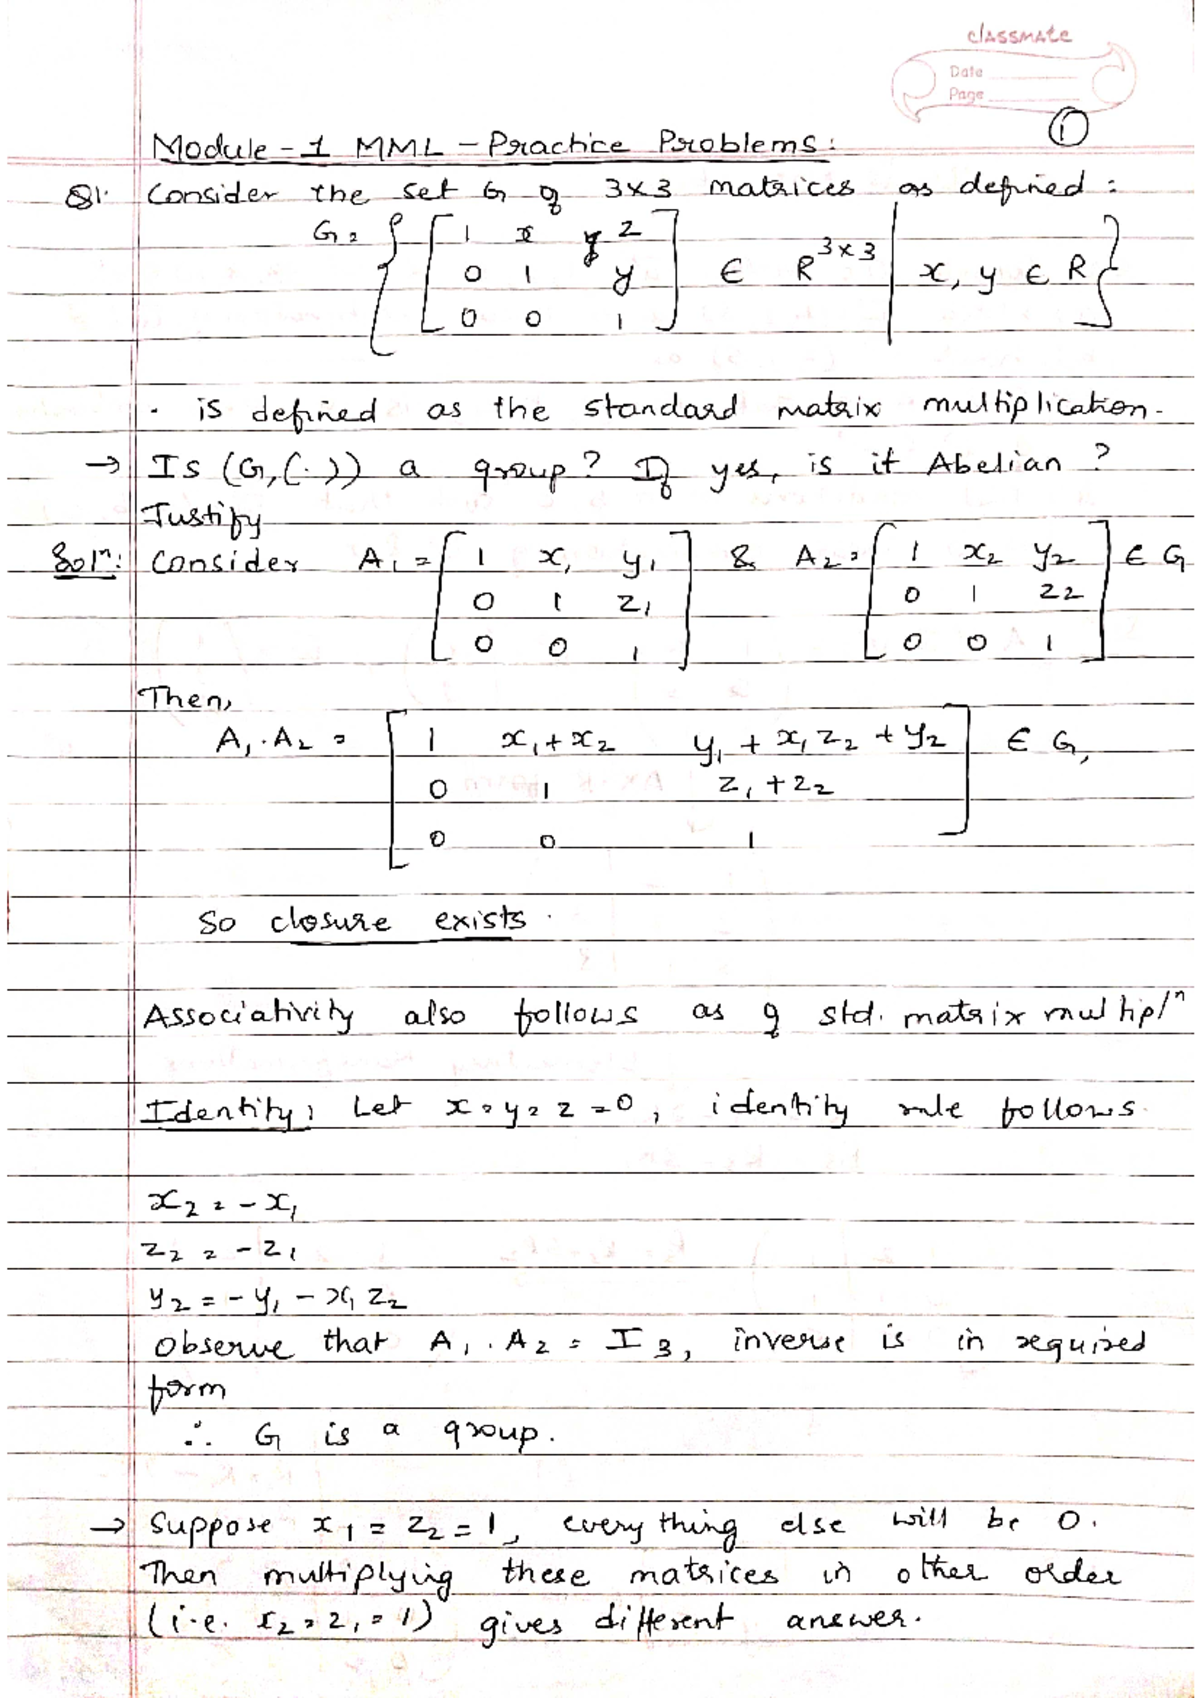 classmate
Date
Page
1
Module - 1 MML - Practice Problems:
Q1. Consider the set G of 3x3 matrices as defined:
G = { [ 1 x z
0 1 y
0 0 1 ] ∈ R^3x3 | x, y ∈ R }
. is defined as the standard matrix multiplication.
→ Is (G, (.)) a group? If yes, is it Abelian?
Justify
Solⁿ: Consider A₁ = [ 1 x₁ y₁ & A₂ = [ 1 x₂ y₂ ] ∈ G
0 1 z₁ 0 1 z₂
0 0 1 ] 0 0 1 ]
Then,
A₁ . A₂ = [ 1 x₁ + x₂ y₁ + x₁ z₂ + y₂ ] ∈ G,
0 1 z₁ + z₂
0 0 1
So closure exists.
Associativity also follows as of std. matrix multiplⁿ
Identity: Let x = y = z = 0, identity rule follows.
x₂ = - x₁
z₂ = - z₁
y₂ = - y₁ - x₁ z₂
Observe that A₁ . A₂ = I₃, inverse is in required
form
∴ G is a group.
→ Suppose x₁ = z₂ = 1, everything else will be 0.
Then multiplying these matrices in other order
(i.e. x₂ = z₁ = 1) gives different answer.